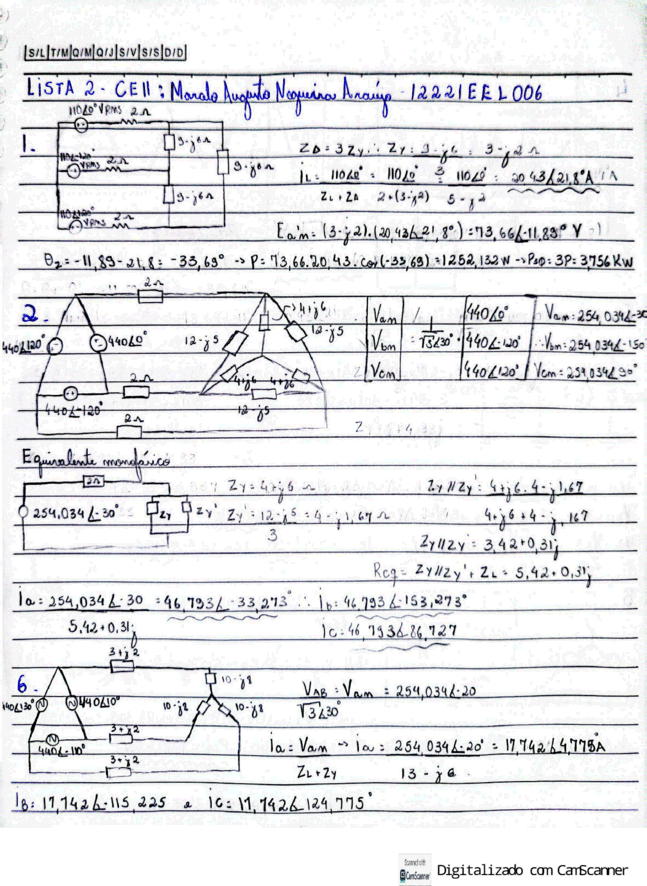 S/L T/M Q/M Q/J S/V S/S D/D
LISTA 2 - CE II : Moralo Augusto Nogueira Araújo - 12221EEL006
110∠0° VRMS 2Ω
1.
9-j6Ω
9-j6Ω
110∠-120°
VRMS
2Ω
9-j6Ω
110∠120°
VRMS
2Ω
ZΔ = 3ZY ∴ ZY = 9-j6 / 3 = 3-j2 Ω
IL = 110∠0° / ZL+ZΔ = 110∠0° / 2+(3-j2) = 110∠0° / 5-j2 = 20,43∠21,8° A
Ea'n = (3-j2).(20,43∠21,8°) = 73,66∠-11,89° V
θz = -11,89-21,8 = -33,69° → P = 73,66.20,43.cos(-33,69) = 1252,132W → P3Ø = 3P = 3,756 KW
2.
2Ω
4+j6
12-j5
12-j5
440∠120°
440∠0°
4+j6
4+j6
2Ω
12-j5
440∠-120°
2Ω
Van 440∠0° Van = 254,034∠-30
Vbn = 1/√3∠30° . 440∠-120° ∴ Vbn = 254,034∠-150
Vcn 440∠120° Vcn = 254,034∠90°
Equivalente monofásico
2Ω
254,034∠-30°
ZY
ZY'
ZY = 4+j6 Ω
ZY' = 12-j5 / 3 = 4-j1,67 Ω
ZY//ZY' = 4+j6 . 4-j1,67 / 4+j6+4-j,167
ZY//ZY' = 3,42+0,31j
Req = ZY//ZY' + ZL = 5,42+0,31j
Ia = 254,034∠-30 / 5,42+0,31j = 46,793∠-33,273° ∴ Ib = 46,793∠-153,273°
Ic = 46,793∠86,727
6.
3+j2
10-j8
440∠130°
440∠10°
10-j8
10-j8
3+j2
440∠-110°
3+j2
VAB / √3∠30° = Van = 254,034∠-20
Ia = Van / ZL+ZY → Ia = 254,034∠-20° / 13-j6 = 17,742∠4,775° A
IB = 17,742∠-115,225 e IC = 17,742∠124,775°
Scanned with
CamScanner
Digitalizado com CamScanner